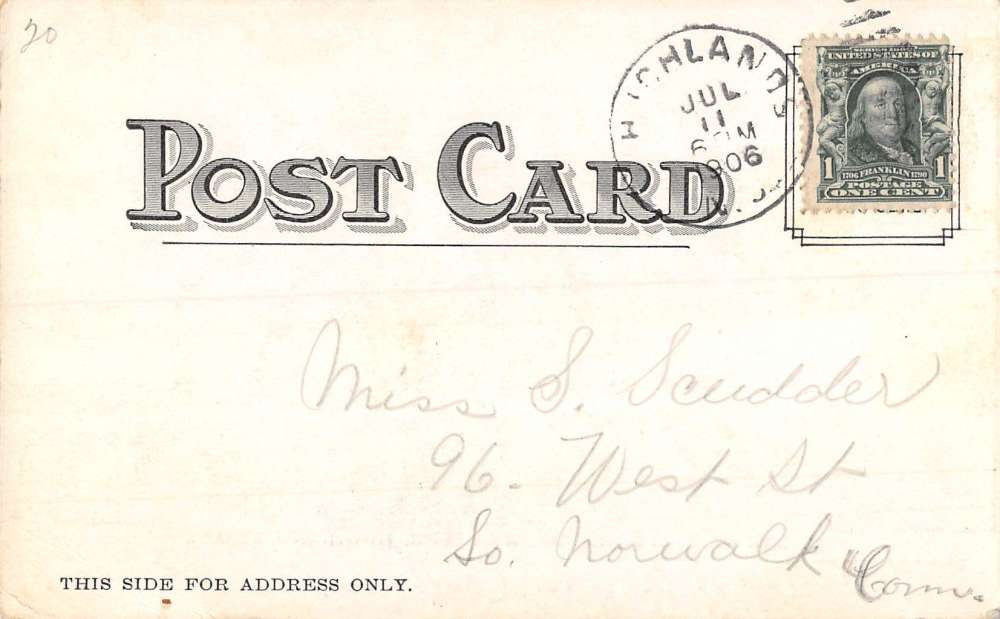 20
HIGHLANDS
JUL
11
6 PM
1906
N.J.
SERIES 1902
UNITED STATES OF
AMERICA
1 1
1706 FRANKLIN 1790
POSTAGE
ONE CENT
POST CARD
Miss S. Scudder
96- West St
So. Norwalk
"Conn.
THIS SIDE FOR ADDRESS ONLY.